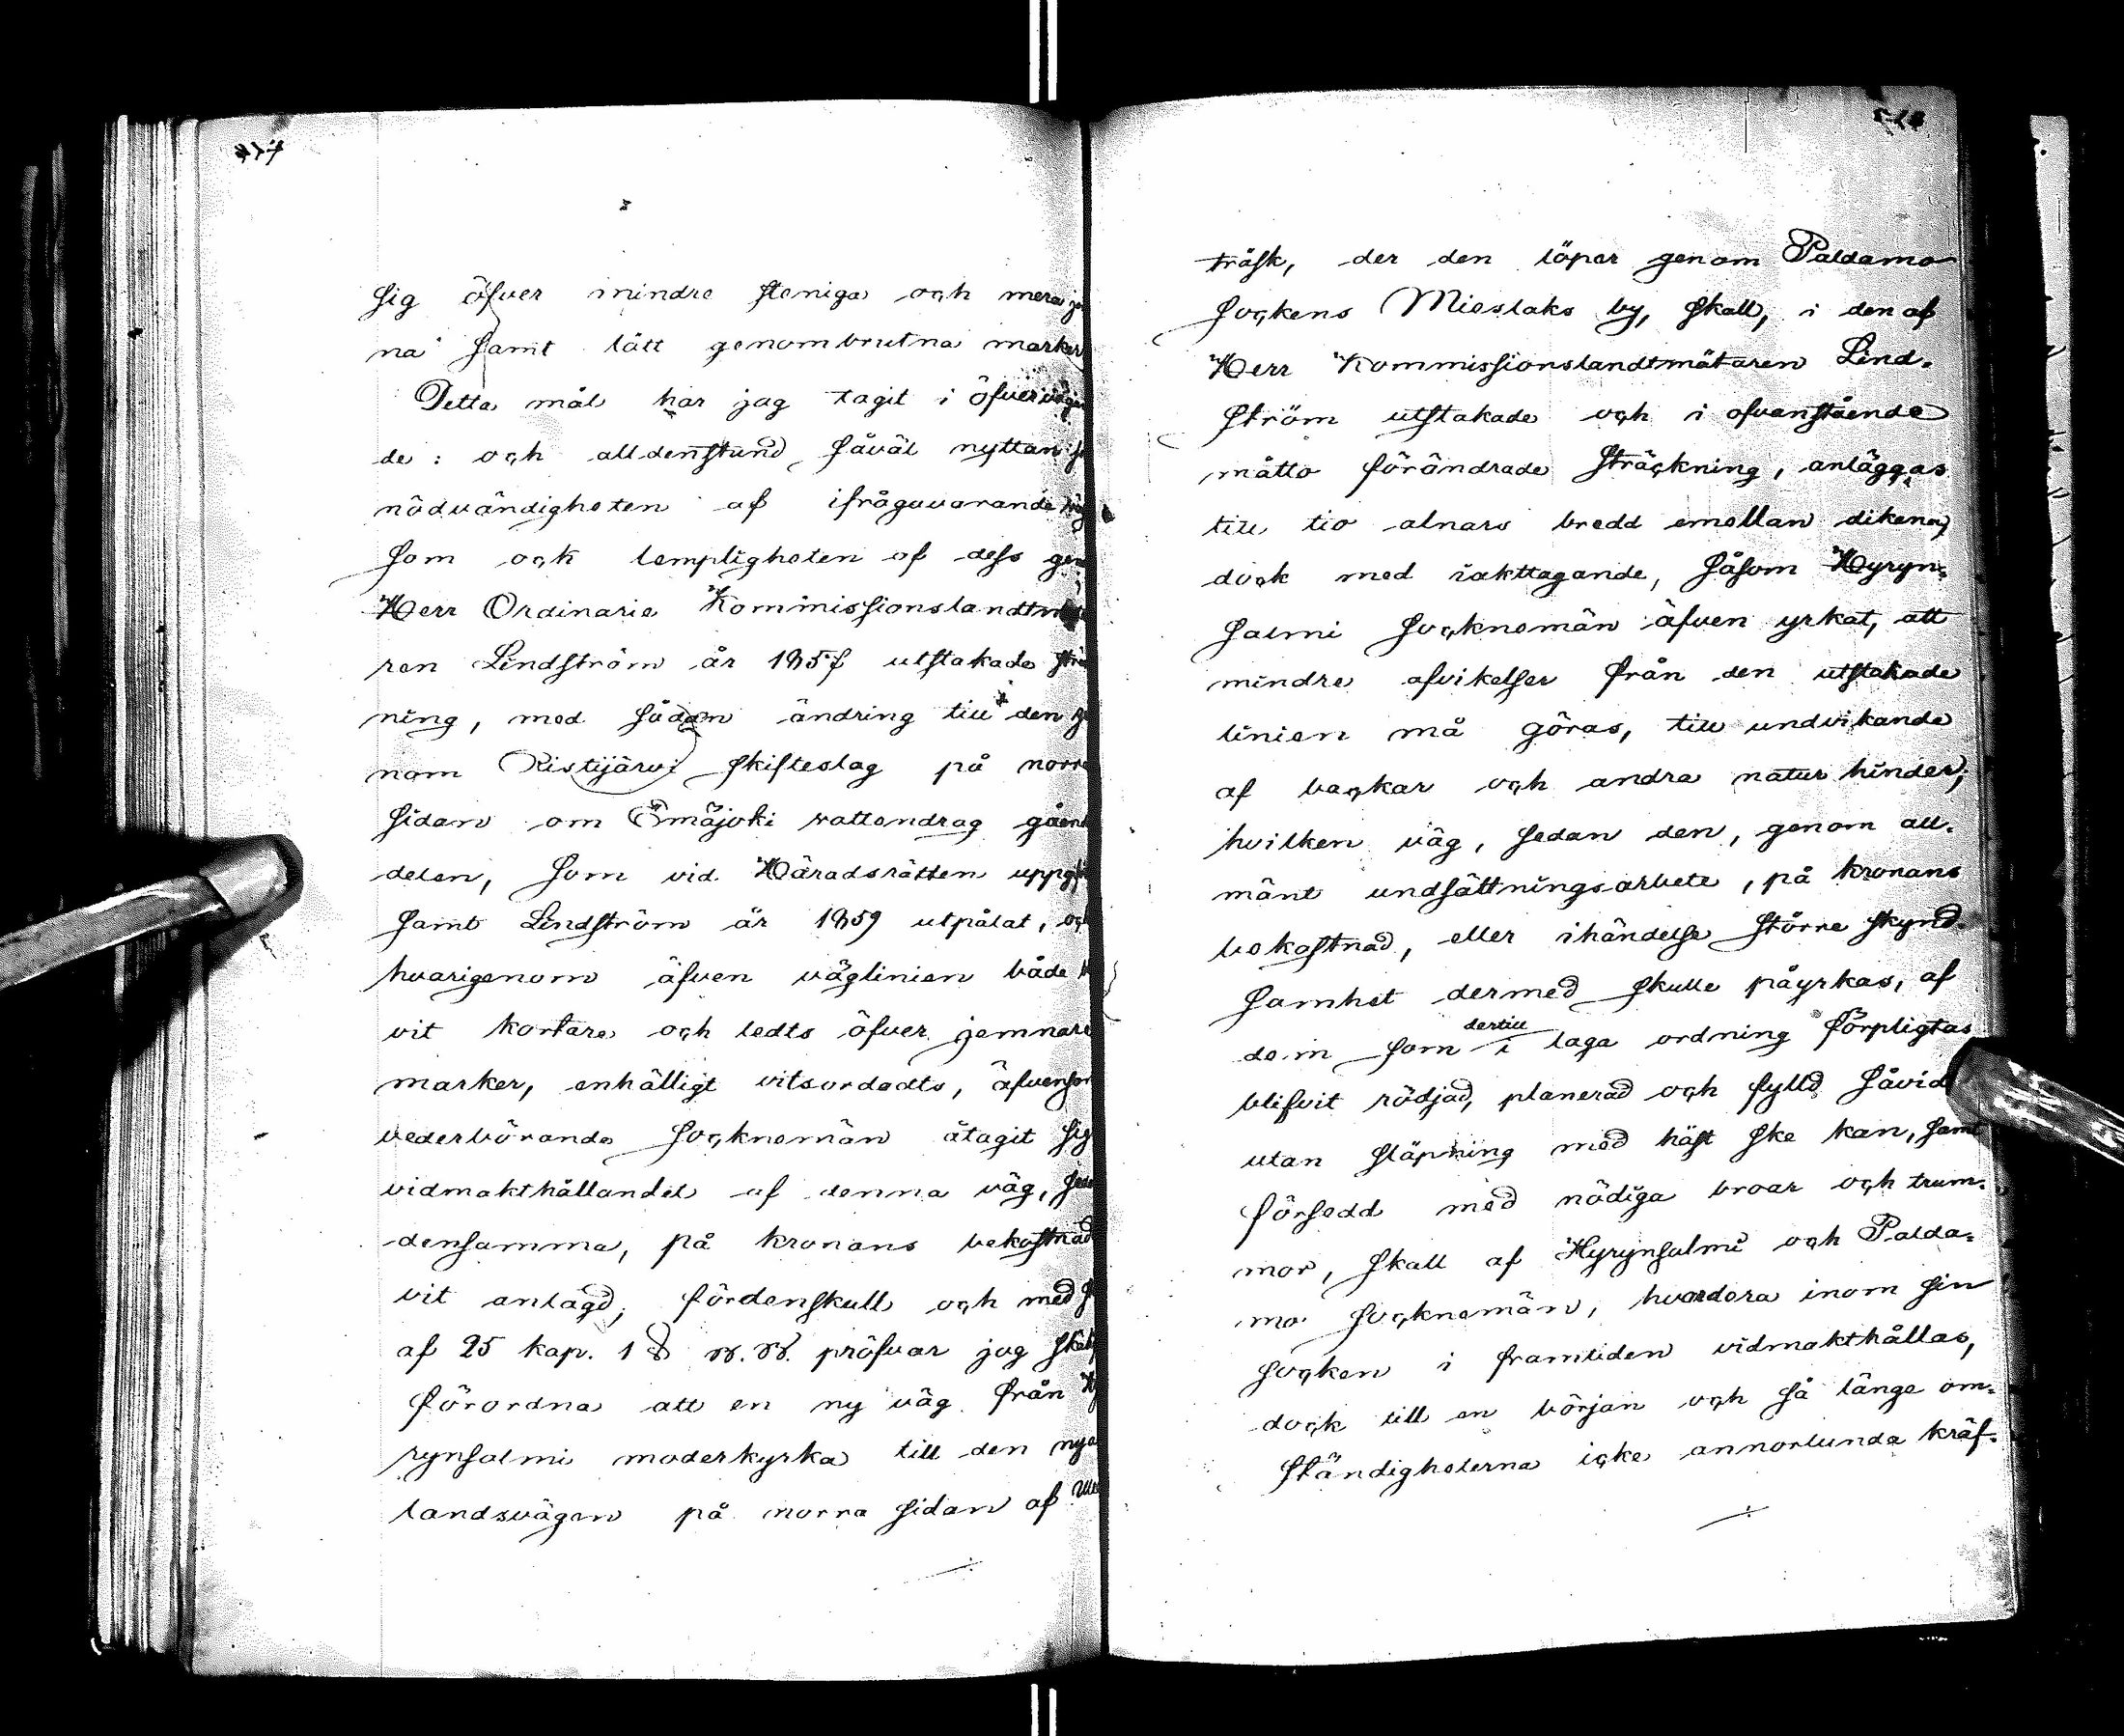 sig öfver mindre steniga och mera
na samt lätt genombrutna marker
Detta mål har jag tagit i öfvervägan
de: och alldenstund såväl nyttan
nödvändigheten af ifrågavarande väg
som ock lempligheten af dess
Herr Ordinarie Kommissionslandtm
ren Lindström år 1857 utstakade
ning, med sådan ändring till den
nom Ristijärvi skifteslag på norra
sidan om Emäjoki vattendrag gåen
delen, som vid Häradsrätten
samt Lindström år 1859 utpålat, och
hvarigenom äfven väglinien både
vit kortare och ledts öfver jemnare
marker, enhälligt vitsordadts, äfvensom
vederbörande sockenemän åtagit sig
vidmakthållandet af denna väg,
densamma, på kronans bekostnad
vit anlagd; fördenskull och med
af 25 kap. 1 § B.B. pröfvar jag
förordna att en ny väg från Hy
rynsalmi moderkyrka till den nya
landsvägen på norra sidan af
träsk, der den löper genom Paldamo
sockens Mieslaks by, skall, i den af
Herr Kommissionslandtmätaren Lind-
ström utstakade och i ofvanstående
måtto förändrade sträckning, anläggas
till tio alnars bredd emellan dikena,
dock med iakttagande, såsom Hyryn-
salmi sockenemän äfven yrkat, att
mindre afvikelser från den utstakade
linien må göras, till undvikande
af backar och andra naturhinder;
hvilken väg, sedan den, genom all-
mänt undsättningsarbete, på kronans
bekostnad, eller ihändelse större skynd-
samhet dermed skulle påyrkas, af
dem som dertill i laga ordning förpligtas
blifvit rödjad, planerad och fylld såvidt
utan släpning med häst ske kan, samt
försedd med nödiga broar och trum-
mor, skall af Hyrynsalmi och Palda-
mo sockenemän, hvardera inom sin
socken i framtiden vidmakthållas,
dock till en början och så länge om-
ständigheterna icke annorlunda kräf-